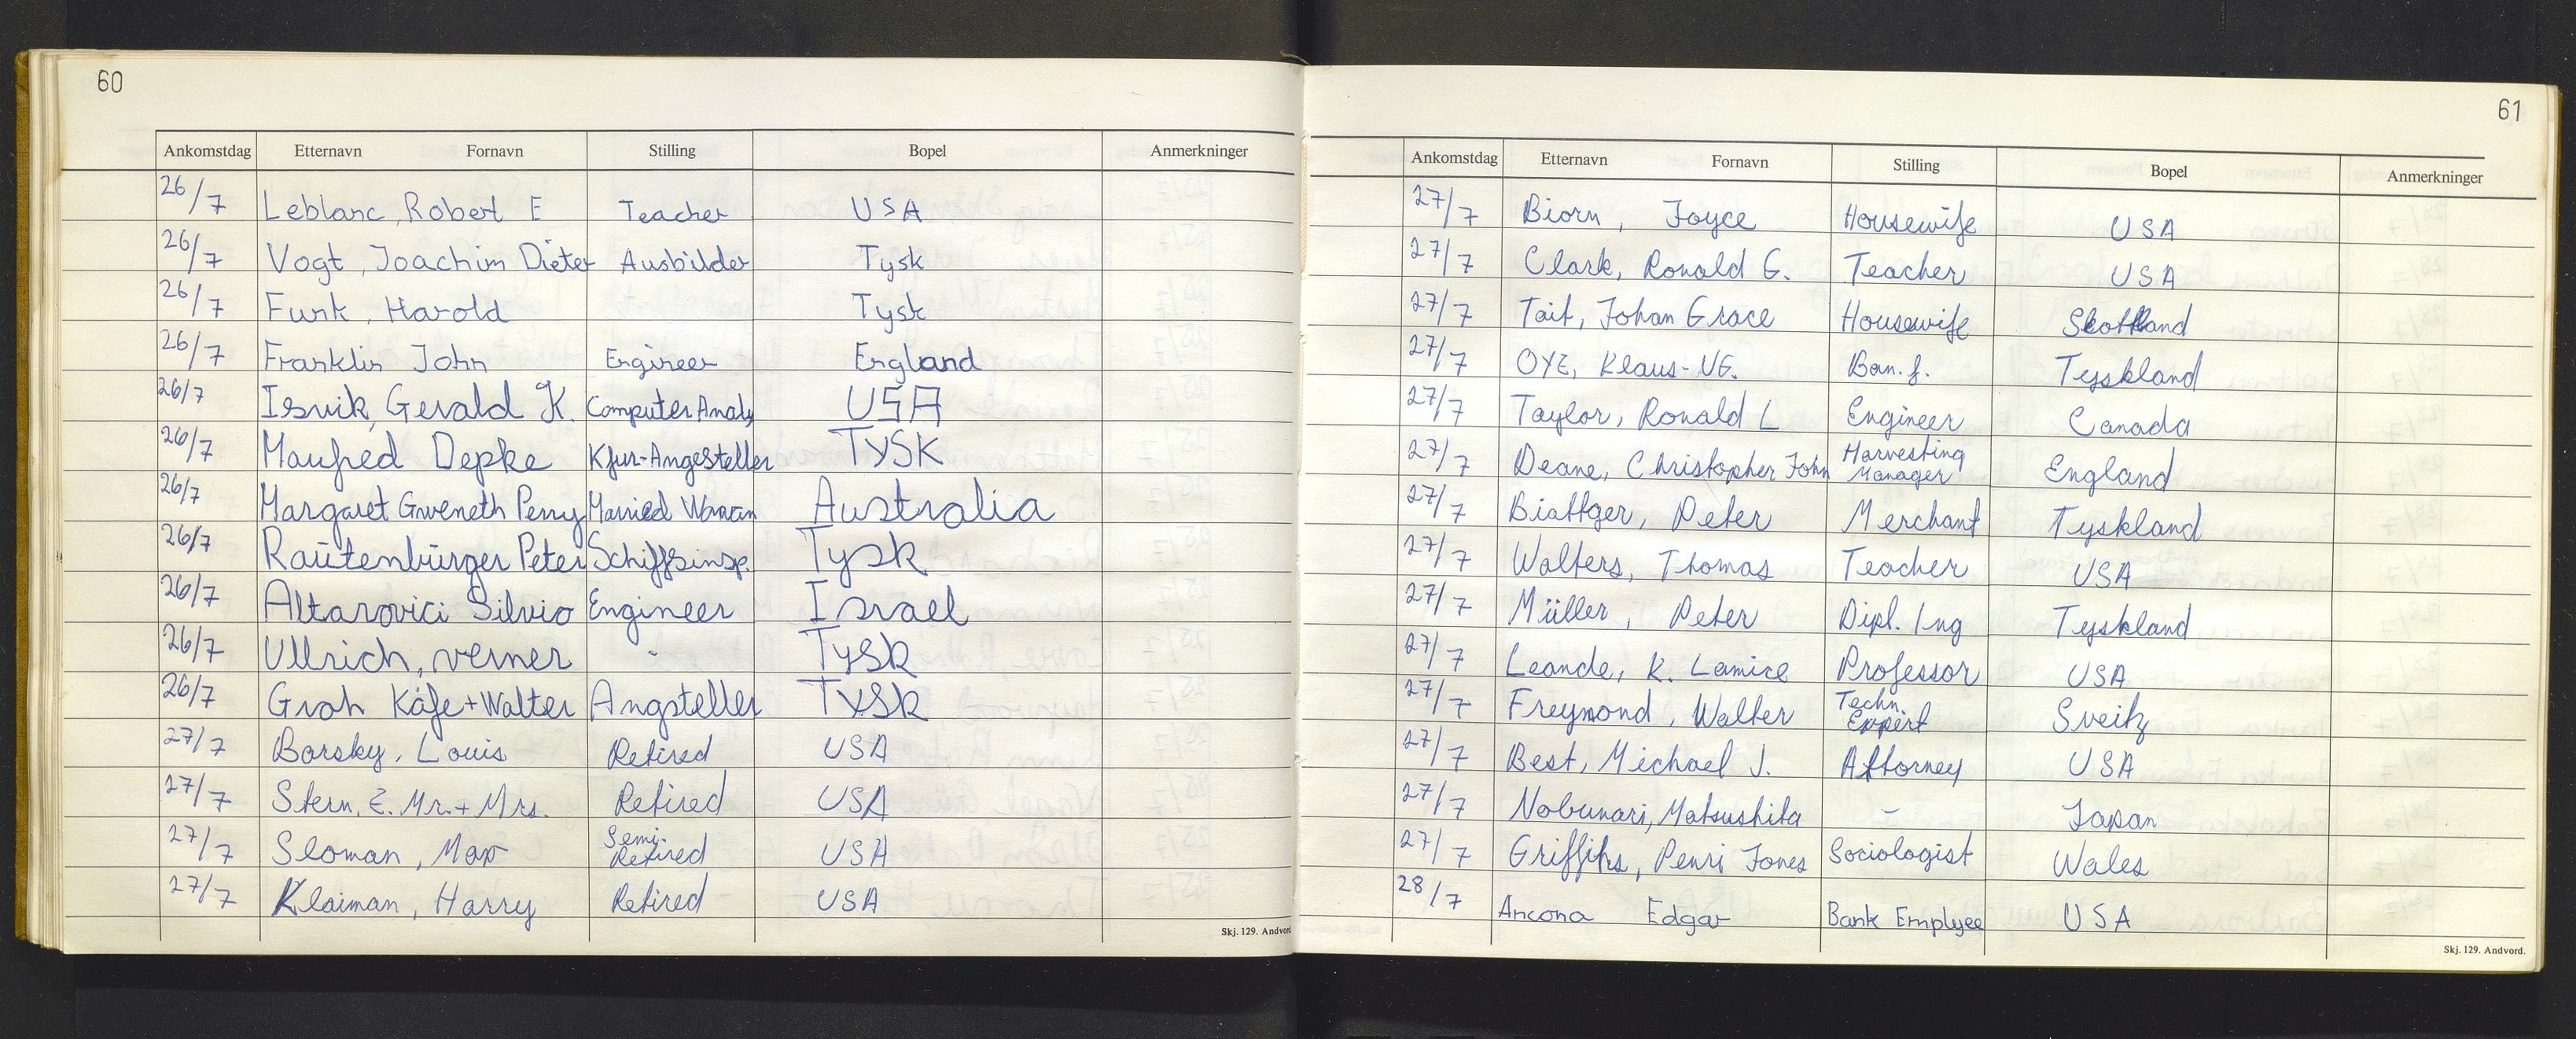 60
Ankomstdag Etternavn Fornavn Stilling Bopel Anmerkninger
26/7 Leblanc, Robert E Teacher USA
26/7 Vogt, Joachim Dieter Ausbilder Tysk
26/7 Funk, Harold Tysk
26/7 Franklin John Engineer England
26/7 Isvik, Gerald K. Computer Analy USA
26/7 Manfred Depke Kfur-Angesteller TYSK
26/7 Margaret Gweneth Perry Married Woman Australia
26/7 Rautenbürger Peter Schiffsinsp. Tysk
26/7 Altarovici Silvio Engineer Israel
26/7 Ullrich, verner - Tysk
26/7 Groh Käfe + Walter Angsteller TYSK
27/7 Barsky, Louis Retired USA
27/7 Stern, E. Mr. + Mrs. Retired USA
27/7 Sloman, Max Semi-Retired USA
27/7 Klaiman, Harry Retired USA
Skj. 129. Andvord
61
Ankomstdag Etternavn Fornavn Stilling Bopel Anmerkninger
27/7 Biorn, Joyce Housewife USA
27/7 Clark, Ronald G. Teacher USA
27/7 Tait, Johan Grace Housewife Skottland
27/7 OYE, Klaus-UG. Ban.f. Tyskland
27/7 Taylor, Ronald L Engineer Canada
27/7 Deane, Christopher John Harvesting Manager England
27/7 Biattger, Peter Merchant Tyskland
27/7 Walters, Thomas Teacher USA
27/7 Müller, Peter Dipl. Ing Tyskland
27/7 Leande, K. Lamice Professor USA
27/7 Freymond, Walter Techn. Expert Sveitz
27/7 Best, Michael J. Attorney USA
27/7 Nobunari, Matsushita - Japan
27/7 Griffihs, Penri Jones Sociologist Wales
28/7 Ancona Edgar Bank Emplyee USA
Skj. 129. Andvord.